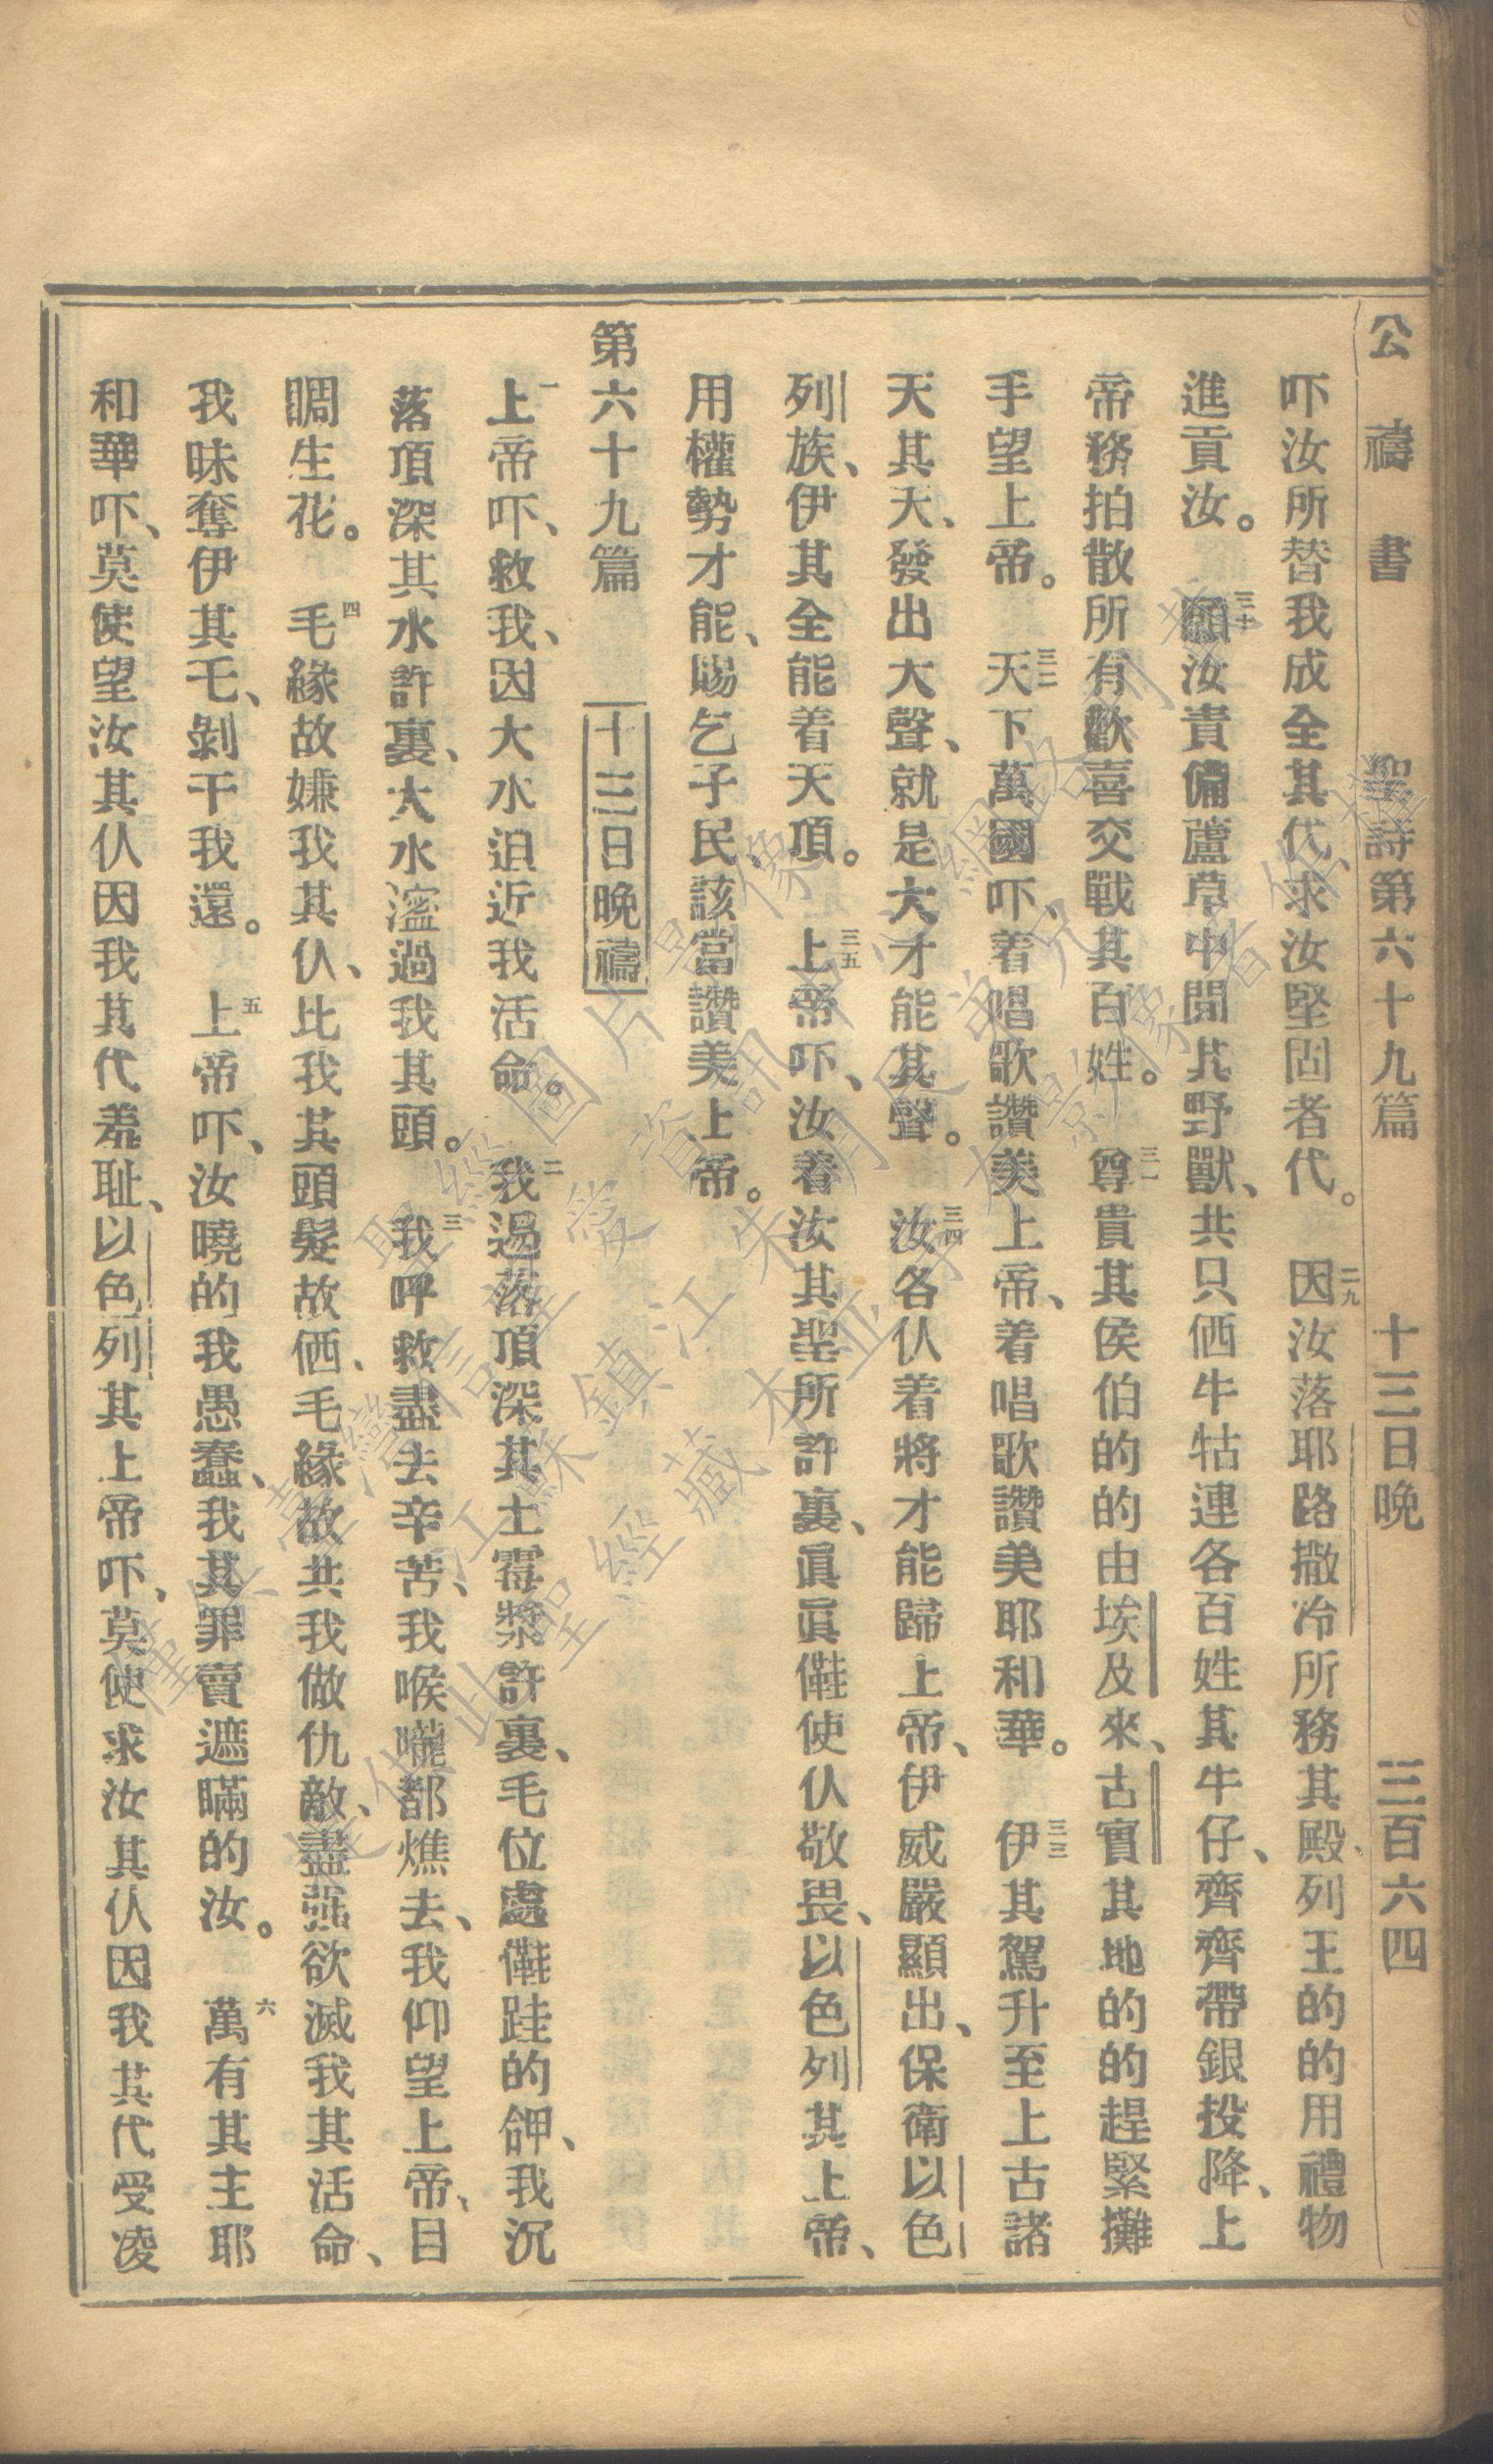 公禱書　聖詩第六十九篇　十三日晚　三百六四
吓汝所替我成全其代、求汝堅固者代。二九因汝落耶路撒冷所務其殿、列王的的用禮物
進貢汝。三十願汝責備蘆草中間其野獸、共只徆牛牯連各百姓其牛仔、齊齊帶銀投降、上
帝務拍散所有歡喜交戰其百姓。三一尊貴其侯伯的的由埃及來、古實其地的的趕緊攤
手望上帝。三二天下萬國吓、着唱歌讚美上帝、着唱歌讚美耶和華。三三伊其駕升至上古諸
天其天、發出大聲、就是大才能其聲。三四汝各仈着將才能歸上帝、伊威嚴顯出、保衛以色
列族、伊其全能着天頂。三五上帝吓、汝着汝其聖所許裏、眞眞㒕使仈敬畏、以色列其上帝、
用權勢才能、賜乞子民、該當讚美上帝。
第六十九篇　十三日晚禱
一上帝吓、救我、因大水迫近我活命。二我過落頂深其土霉漿許裏、毛位處㒕跬的䶎、我沉
落頂深其水許裏、大水濫過我其頭。三我呼救盡去辛苦、我喉嚨都燋去、我仰望上帝、目
睭生花。四毛緣故嫌我其仈、比我其頭髮故徆、毛緣故共我做仇敵、盡强欲滅我其活命、
我昧奪伊其乇、剝干我還。五上帝吓、汝曉的我愚蠢、我其罪賣遮瞞的汝。六萬有其主耶
和華吓、莫使望汝其仈因我其代羞耻、以色列其上帝吓、莫使求汝其仈因我其代受凌